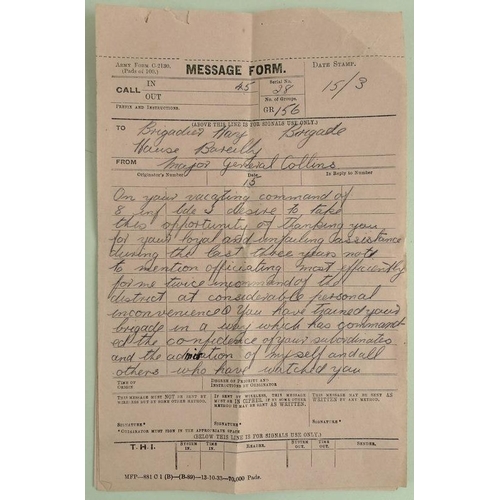 Army Form C 2136.
(Pads of 100.)
MESSAGE FORM.
DATE STAMP.
CALL
IN
OUT
45
Serial No.
28
15/3
No. of Groups.
GR 156
PREFIX AND INSTRUCTIONS.
(ABOVE THIS LINE IS FOR SIGNALS USE ONLY.)
TO Brigadier Hay Brigade
House Bareilly
FROM Major General Collins
Originator's Number Date In Reply to Number
15
On your vacating command of
8 Inf Bde I desire to take
this opportunity of thanking you
for your loyal and unfailing assistance
during the last three years not
to mention officiating most efficiently
for me twice in command of the
district at considerable personal
inconvenience You have trained your
brigade in a way which has command
ed the confidence of your subordinates
and the admiration of myself and all
others who have watched you
TIME OF ORIGIN
DEGREE OF PRIORITY AND INSTRUCTIONS BY ORIGINATOR
THIS MESSAGE MUST NOT BE SENT BY
IF SENT BY WIRELESS, THIS MESSAGE
MUST BE IN CIPHER. IF BY SOME OTHER
METHOD IT MAY BE SENT AS WRITTEN.
THIS MESSAGE MAY BE SENT AS WRITTEN
BY ANY METHOD.
SIGNATURE*
SIGNATURE*
SIGNATURE*
*ORIGINATOR MUST SIGN IN THE APPROPRIATE SPACE
(BELOW THIS LINE IS FOR SIGNALS USE ONLY.)
T. H. I.
SYSTEM IN.
TIME IN.
READER.
SENDER.
SYSTEM OUT.
TIME OUT.
READER.
SENDER.